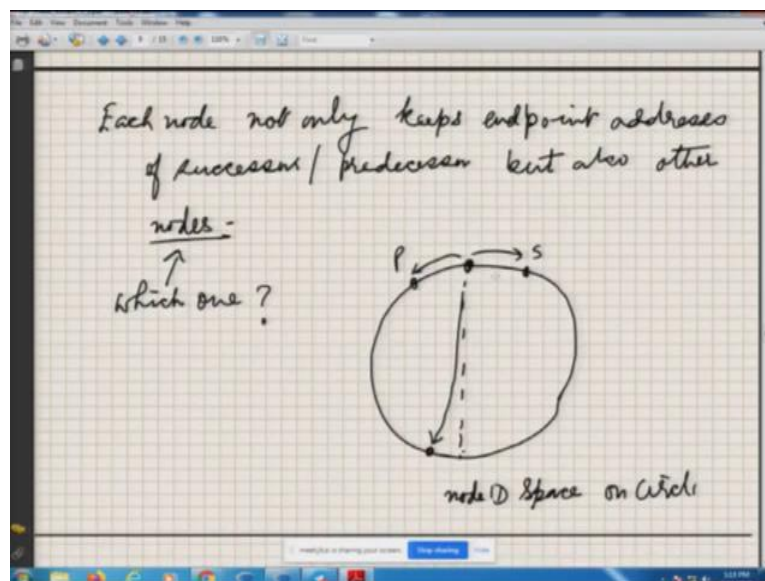 File Edit View Document Tools Window Help
Each node not only keeps endpoint addresses
of successor / predecessor but also other
nodes -
which one ?
P
S
node ID Space on Circle
is sharing your screen. Stop sharing Hide